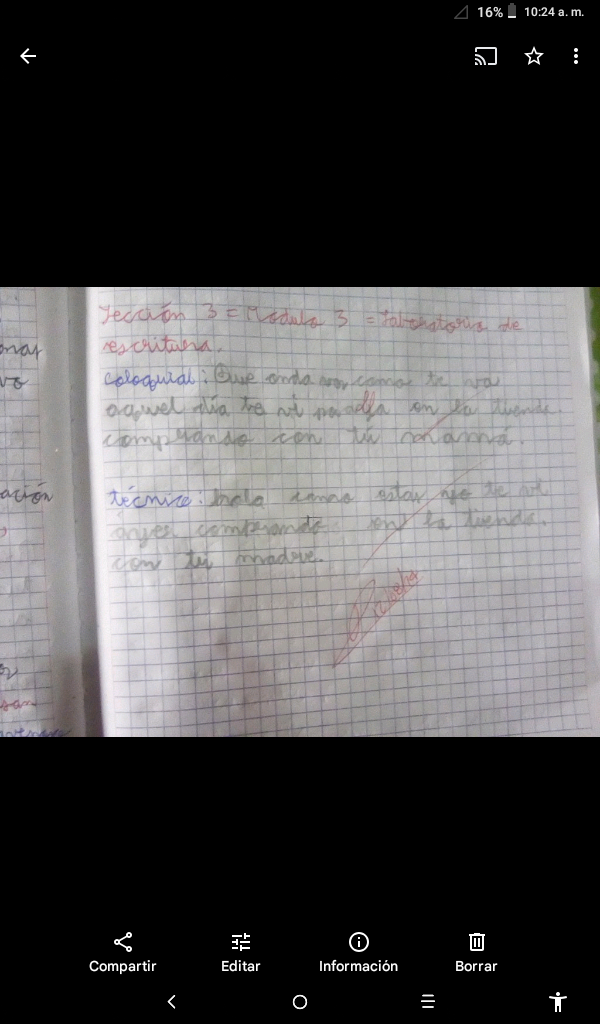 16% 10:24 a. m.
Sección 3 = Modulo 3 = Laboratorio de
escritura.
coloquial: Que onda vos, como te va
aquel día te vi en la tienda.
comprando con tú mamá.
técnico: hola como estas yo te vi
comprando en la tienda.
con tú madre.
ación
san
Compartir Editar Información Borrar